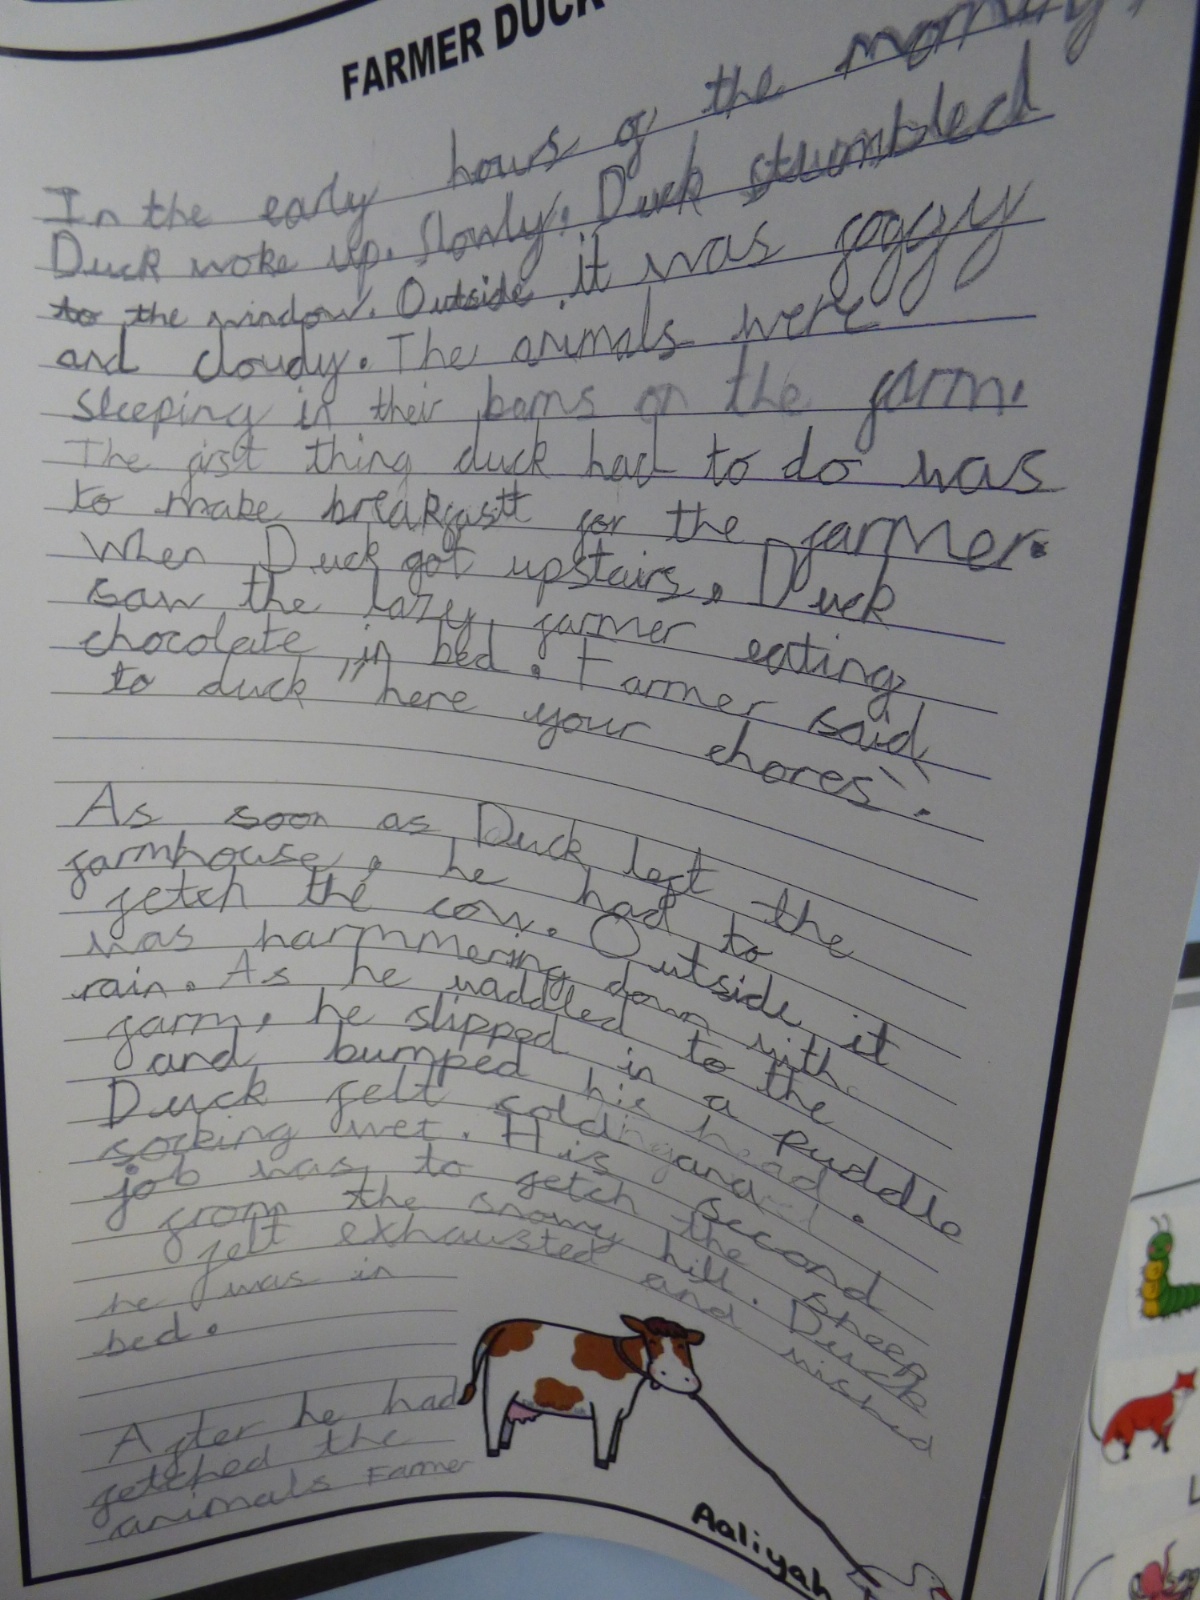 FARMER DUCK
In the early hours of the morning,
Duck woke up. Slowly, Duck stumbled
to the window. Outside it was foggy
and cloudy. The animals were
sleeping in their barns on the farm.
The first thing duck had to do was
to make breakfastt for the farmer.
When Duck got upstairs, Duck
saw the lazy farmer eating
chocolate in bed. Farmer said
to duck "here your chores".
As soon as Duck left the
farmhouse, he had to
fetch the cow. Outside, it
was harmmering down with
rain. As he waddled to the
farm, he slipped in a puddle
and bumped his head.
Duck felt cold and
socking wet. His second
job was to fetch the sheep
from the snowy hill. Duck
felt exhausted and wished
he was in
bed.
After he had
fetched the
animals Farmer
Aaliyah